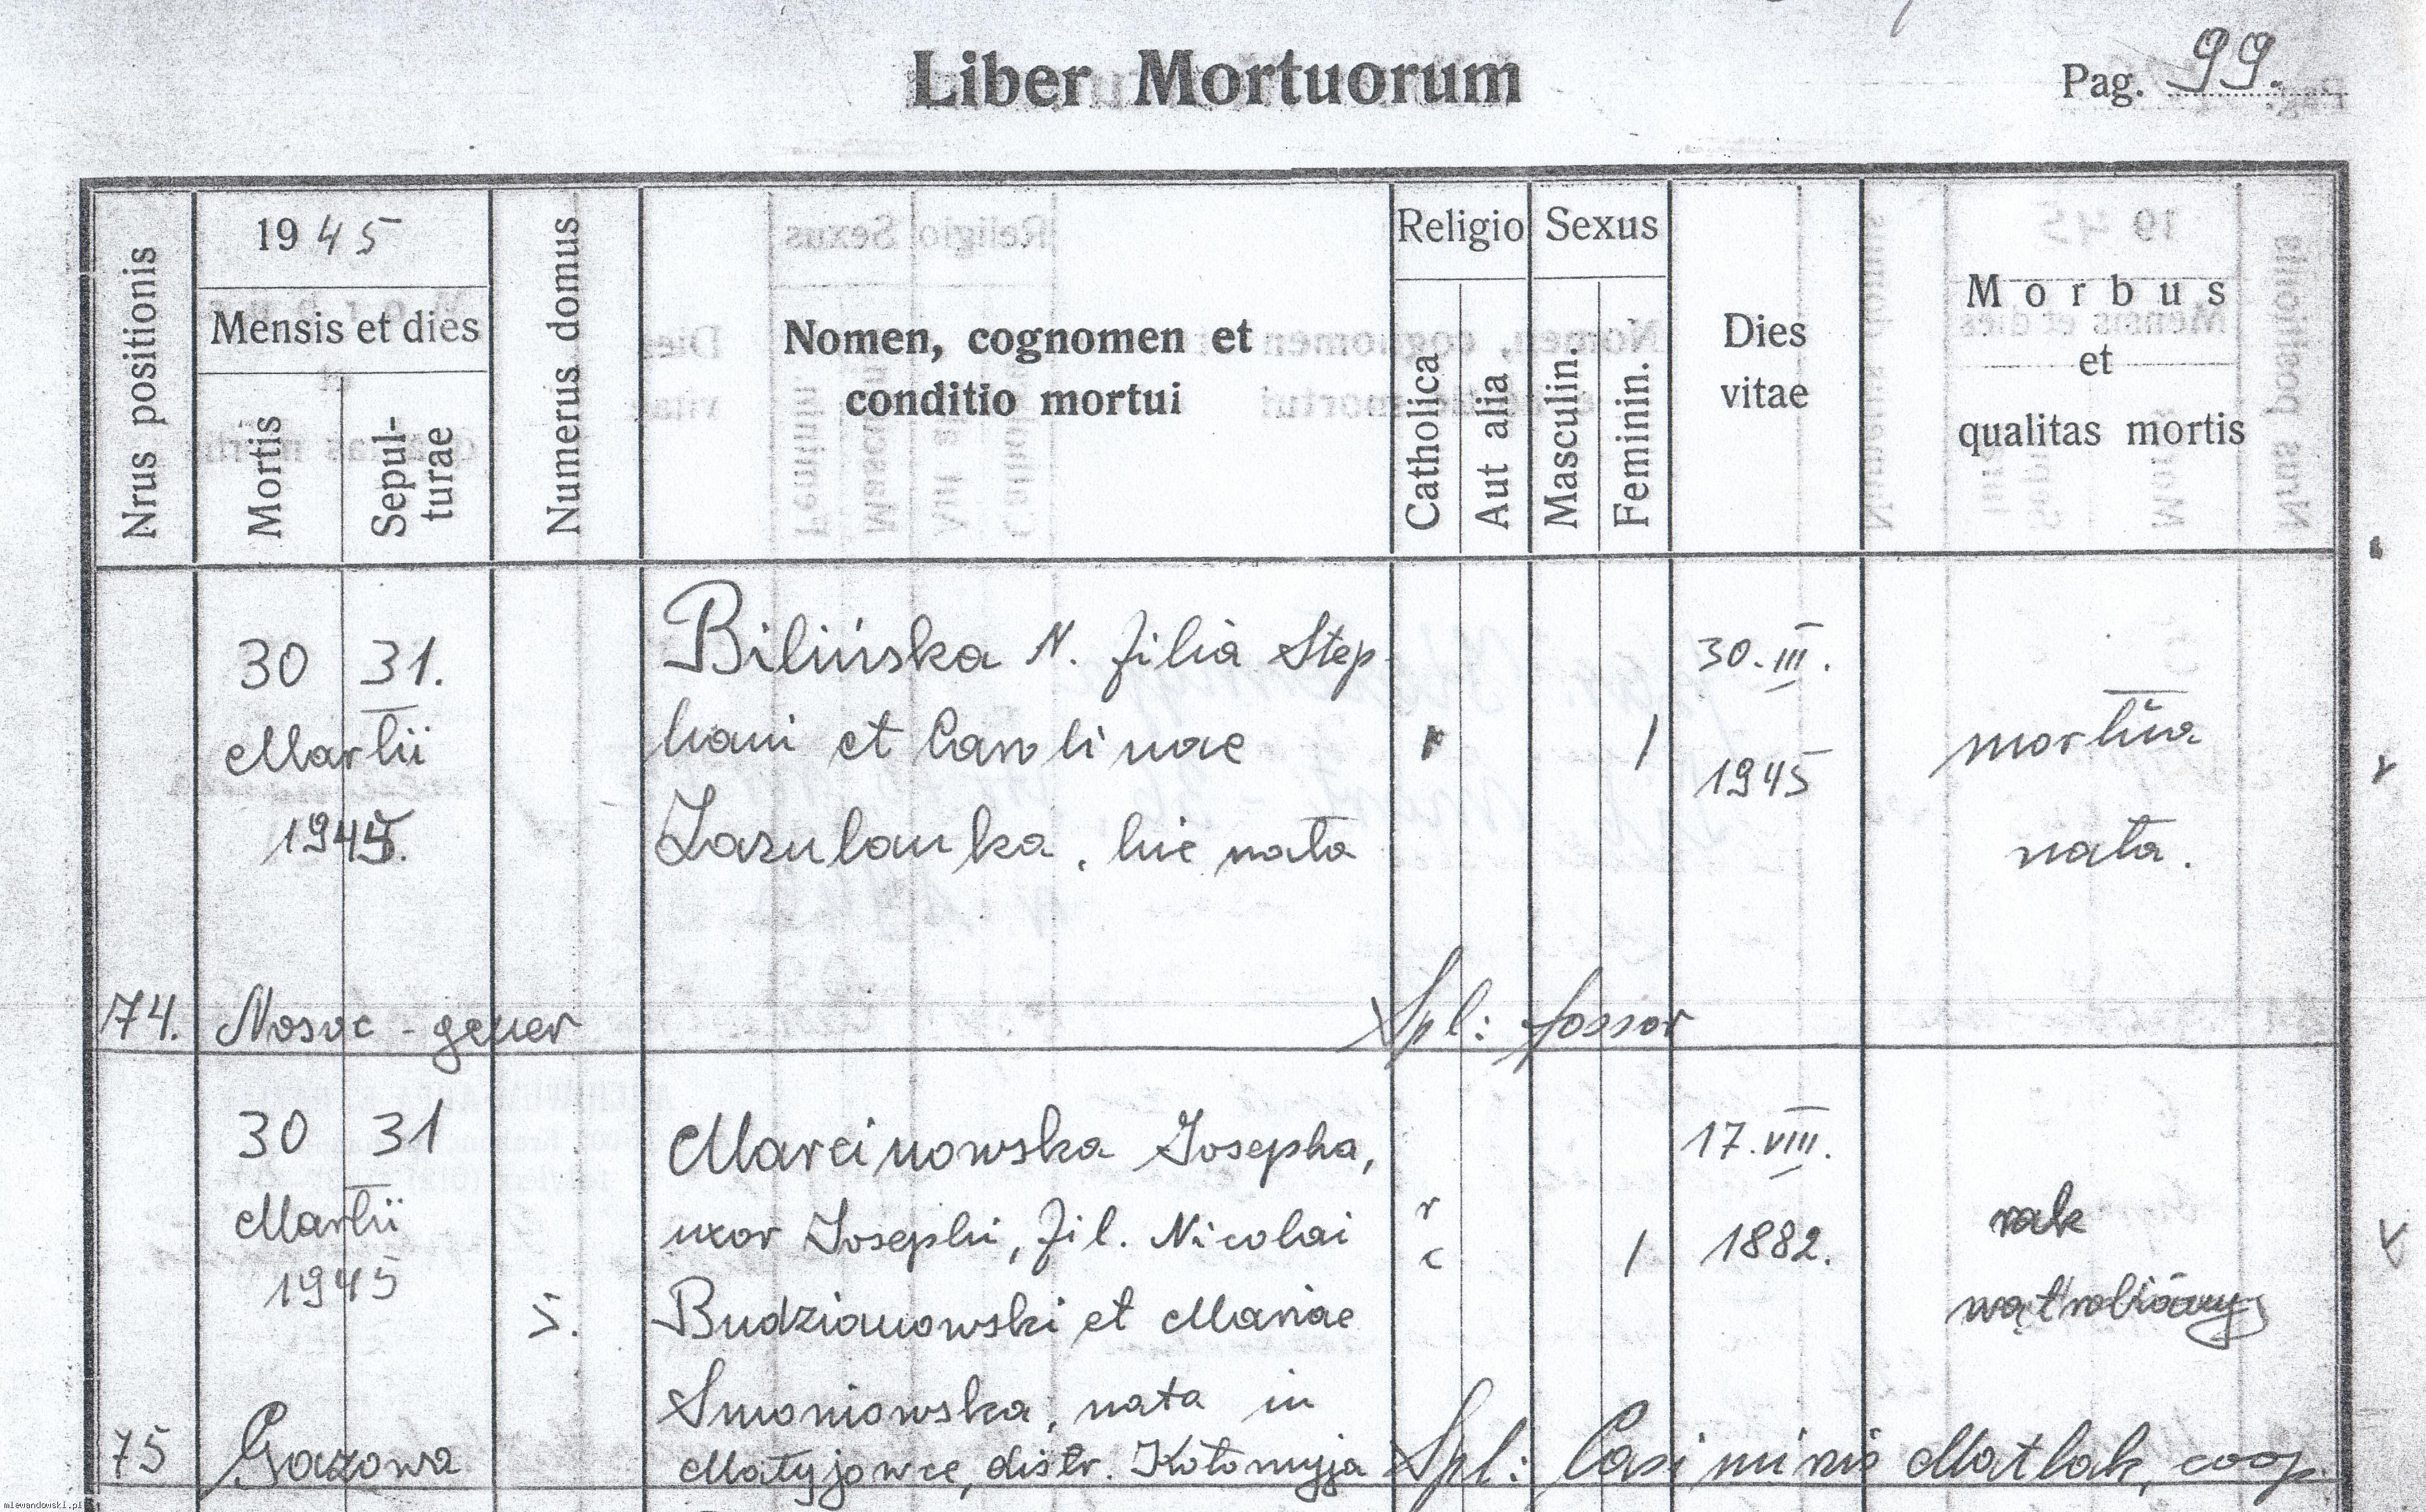 Liber Mortuorum
Pag. 99.
Nrus positionis
1945
Mensis et dies
Mortis
Sepul-
turae
Numerus domus
Nomen, cognomen et
conditio mortui
Religio
Catholica
Aut alia
Sexus
Masculin.
Feminin.
Dies
vitae
Morbus
et
qualitas mortis
30 31.
Martii
1945.
Bilińska N. filia Step
hani et Carolinae
Zasulanka, hic nata
r
1
30.III.
1945
mortua
nata.
74. Nosoc - gener
Spl: fossor
30 31
Martii
1945
5.
Marcinowska Josepha,
uxor Josephi, fil. Nicolai
Budzianowski et Mariae
Smoniowska, nata in
Matyjowce, distr. Kołomyja
r
c
1
17.VIII.
1882.
rak
wątrobiany
75 Gazowa
Spl: Casimiris Matlak, coop.
mlewandowski.pl